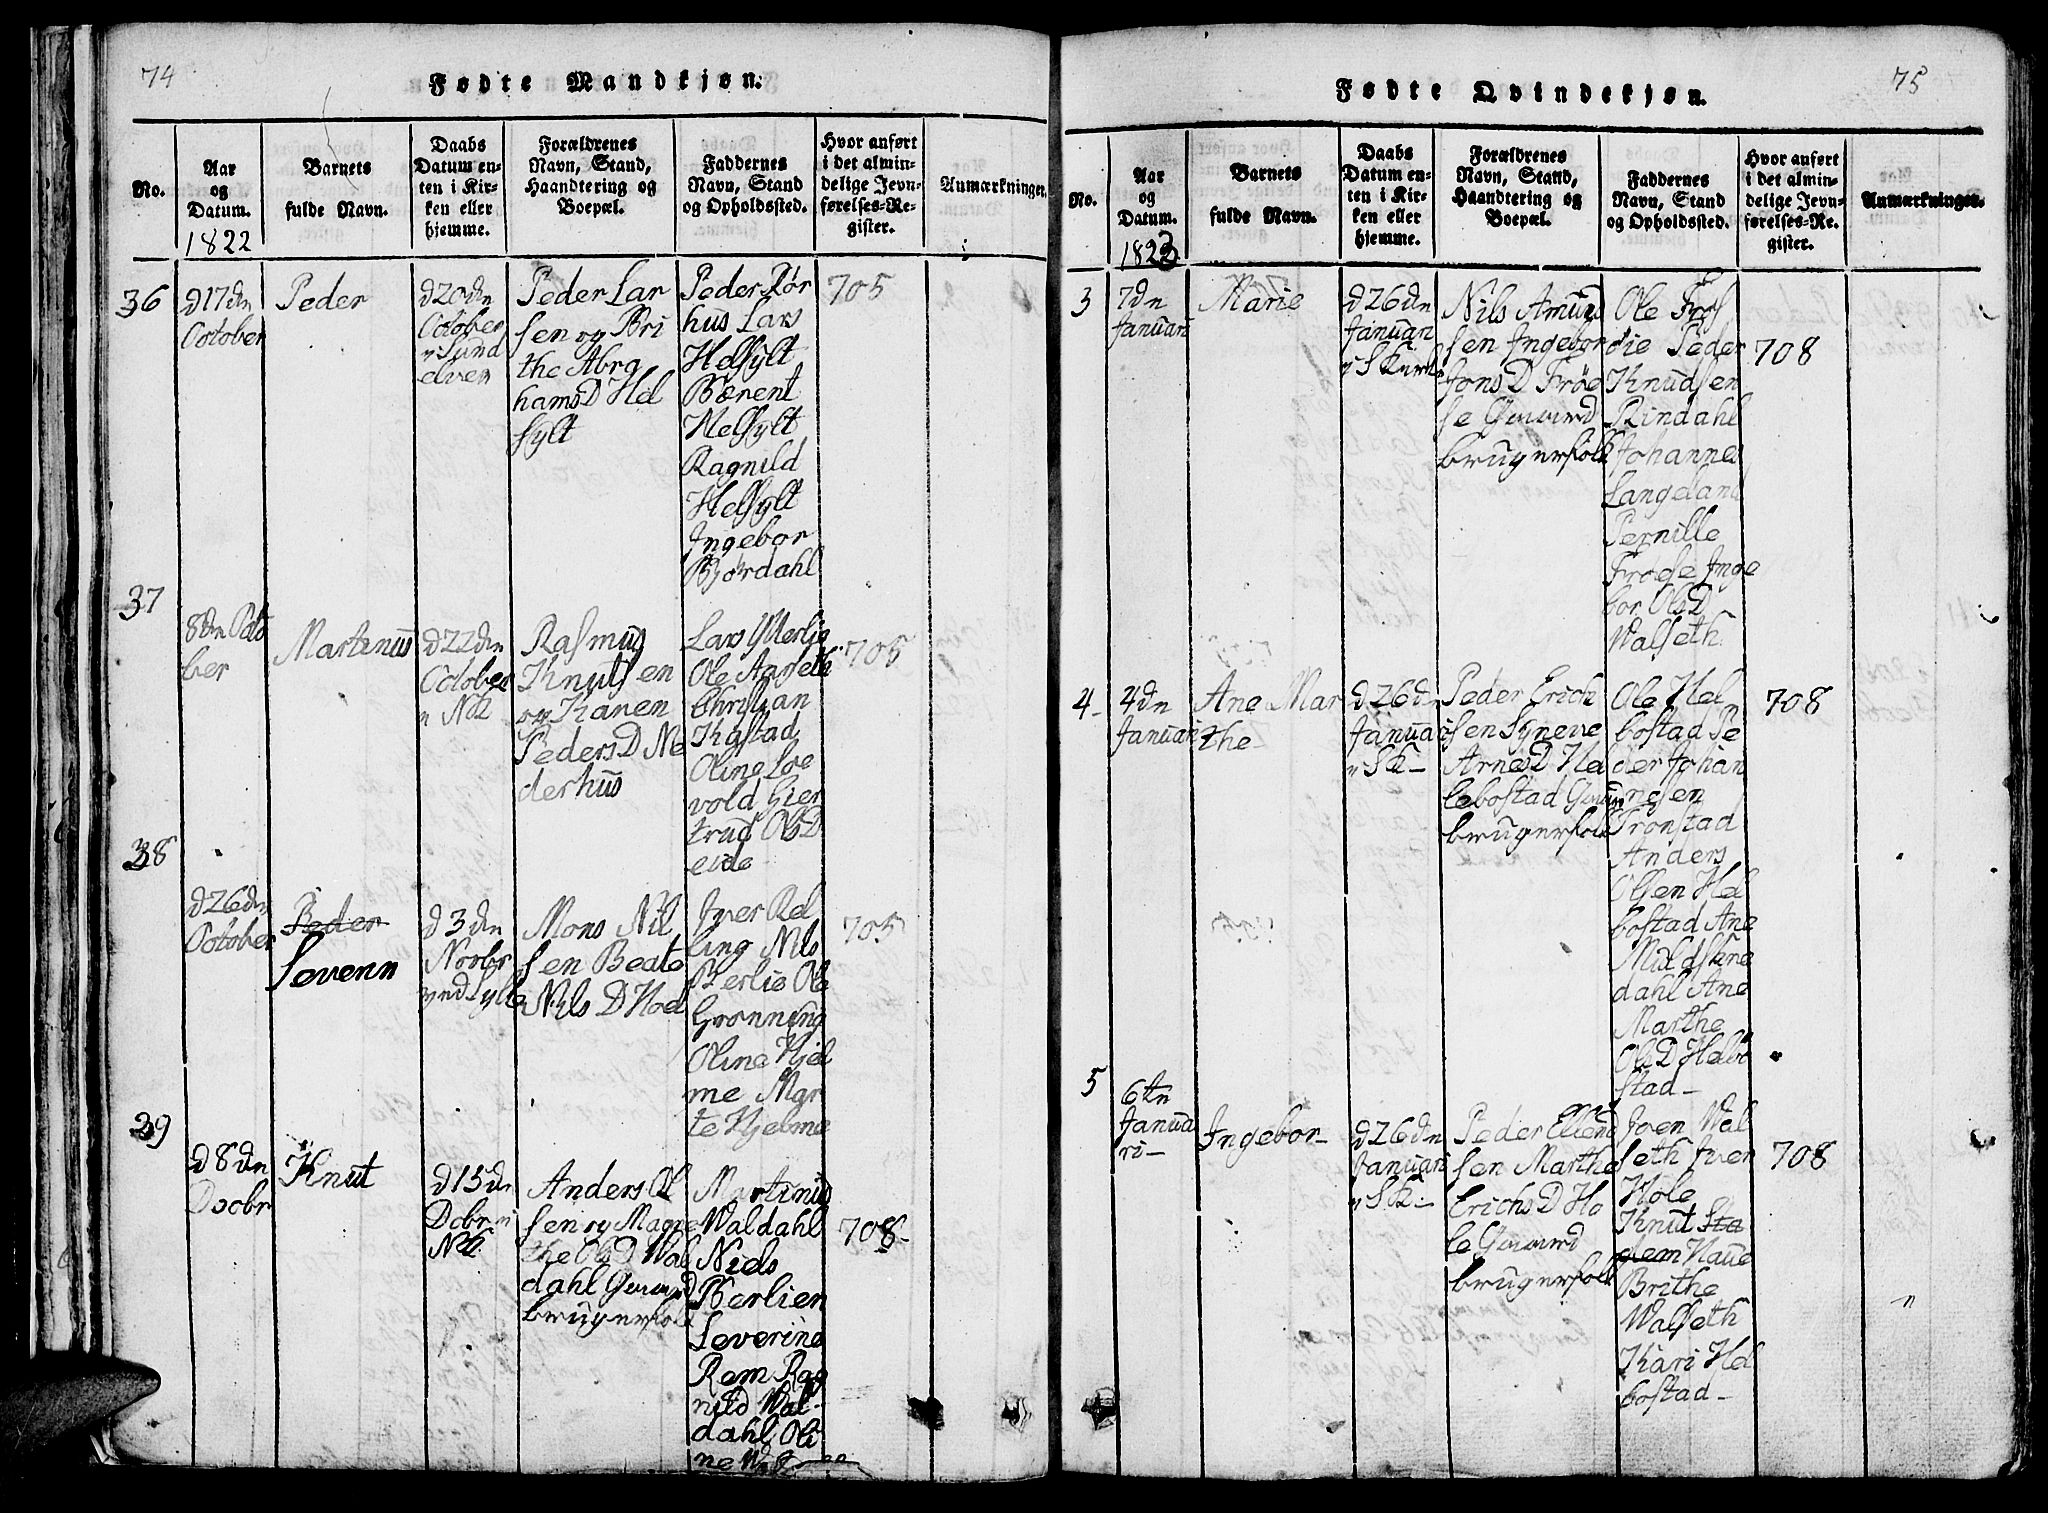 74
Fødte Mandkjøn.
No.
Aar
og
Datum.
1822
Barnets
fulde Navn.
Daabs
Datum en-
ten i Kir-
ken eller
hjemme.
Forældrenes
Navn, Stand,
Haandtering og
Boepæl.
Faddernes
Navn, Stand
og Opholdssted.
Hvor anført
i det almin-
delige Jevn-
førelses-Re-
gister.
Anmærkninger.
36
d 17dn
October
Peder
d 20dn
October
i Sund
elven
Peder Lar
sen og Bri
the Abra
hams D Hel
sylt
Peder Rør
hus Lars
Helsylt
Bærent
Helsylt
Ragnild
Helsylt
Ingebor
Bjørdahl
705
37
8dn Octo
ber
Martinus
d 22dn
October
i NK
Rasmus
Knutsen
og Karen
Peders D Ne
derhus
Lars
Ole Anseth
Christian
Kastad
Oline Loe
vold Gier
trud Ols D
eide
705
38
d 26dn
October
Peder
Severin
d 3dn
Novbr
ved Sylte
Mons Nil
sen Beate
Nils D Hoel
Iver Rel
ling Nils
Berlie Ole
Grønning
Olina Hjel
me Mar
te Hjelme
705
39
d 8dn
Dcobr
Knut
d 15dn
Dcbr i
NK
Anders Ol
sen og Magre
the Ols D Wal
dahl Gaard
brugerfolk
Martinus
Waldahl
Niels
Berlien
Severine
Rem Rag
nild Wal-
dahl Oli
ne
708-
75
Fødte Qvindekjøn.
No.
Aar
og
Datum.
1823
Barnets
fulde Navn.
Daabs
Datum en-
ten i Kir-
ken eller
hjemme.
Forældrenes
Navn, Stand,
Haandtering og
Boepæl.
Faddernes
Navn, Stand
og Opholdssted.
Hvor anført
i det almin-
delige Jevn-
førelses-Re-
gister.
Anmærkninger.
3
7dn
Januari
Marie
d 26dn
Januari
i S Kirke
Nils Amunds
sen Ingebor
Jons D Frøe
se Gaard
brugerfolk
Ole Frøs
die Peder
Knudsen
Rindahl
Johannes
Langeland
Pernille
Frøese Inge
bor Ols D
Walseth
708
4-
4dn
Januari
Ane Mar
the-
d 26dn
Januari
i SK-
Peder Erich
sen Syneve
Arnes D He
lebostad Gaard
brugerfolk
Ole Hel
bostad Pe
der Johan
nesen
Tronstad
Anders
Olsen Hel
bostad Ane
dahl Ane
Marthe
Ols D Helbo
stad-
708
5
6tn
Janua
ri-
Ingebor-
d 26dn
Januari
i SK-
Peder Ellend
sen Marthe
Erichs D Ho
le Gaard
brugerfolk
Joen Wal
seth Iver
Hole
Knut Sta
dem Haue
Brithe
Walseth
Kari Hel
bostad-
708